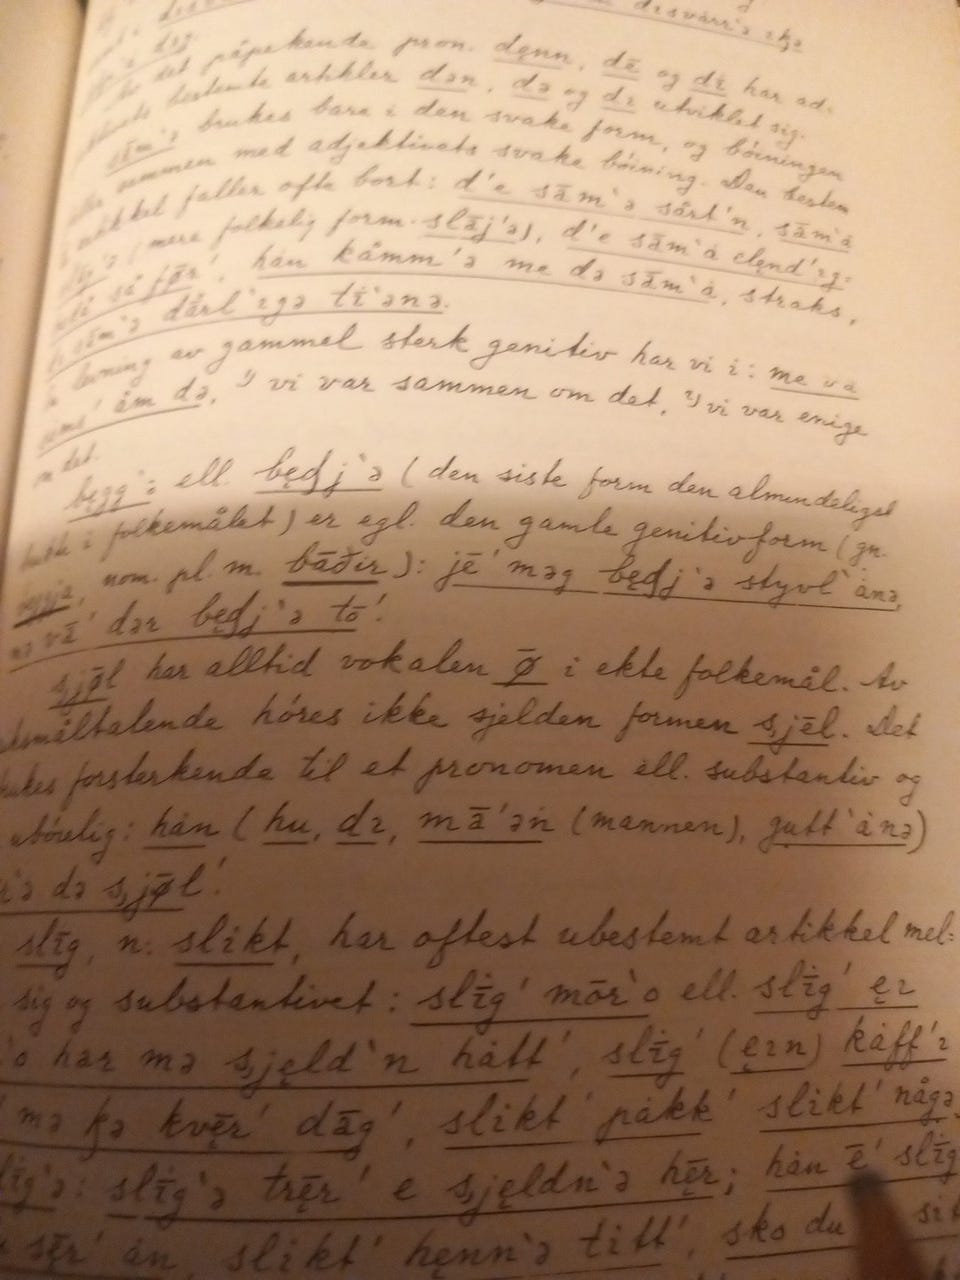 det påpekende pron. dęnn, dē og dɪ har ad-
bestemte artikler dən, də og dɪ utviklet sig.
sām'ə brukes bare i den svake form, og bóiningen
sammen med adjektivets svake bóining. Den bestem
faller ofte bort: d'e sām`ə sårt'n, sām`å
(mere folkelig form. slāj'ə), d'e sām`å elęnd'ɪg-
så før', hån kåmm'ə me də sām`å, straks,
dårl`ɪgə tī`ənə.
levning av gammel sterk genitiv har vi i: me va
åm də, ¹) vi var sammen om det, ²) vi var enige
det.
bęgg`ə ell. będj`ə (den siste form den almindeligst
i folkemålet) er egl. den gamle genitivform (gn.
beggja, nom. pl. m. bāðir): jē' məg będj`ə styvl`ånə,
vā' dər będj`ə tō'.
sjø̄l har alltid vokalen ø̄ i ekte folkemål. Av
hóres ikke sjelden formen sjēl. Det
brukes forsterkende til et pronomen ell. substantiv og
ubóielig: hån (hu, dɪ, mā'ən (mannen), gutt`ånə)
də sjø̄l'.
slīg, n: slikt, har oftest ubestemt artikkel mel-
sig og substantivet: slīg' mōr`o ell. slīg' ęɪ
har mə sjęld`n hått', slīg' (ęɪn) kåff'ɪ
mə kə kvęr' dāg', slikt' påkk' slikt' någə,
slīg`ə trēr' e sjęldn`ə hēr; hån ē' slīg
sēr' ån, slikt' hęnn`ə titt', sko du